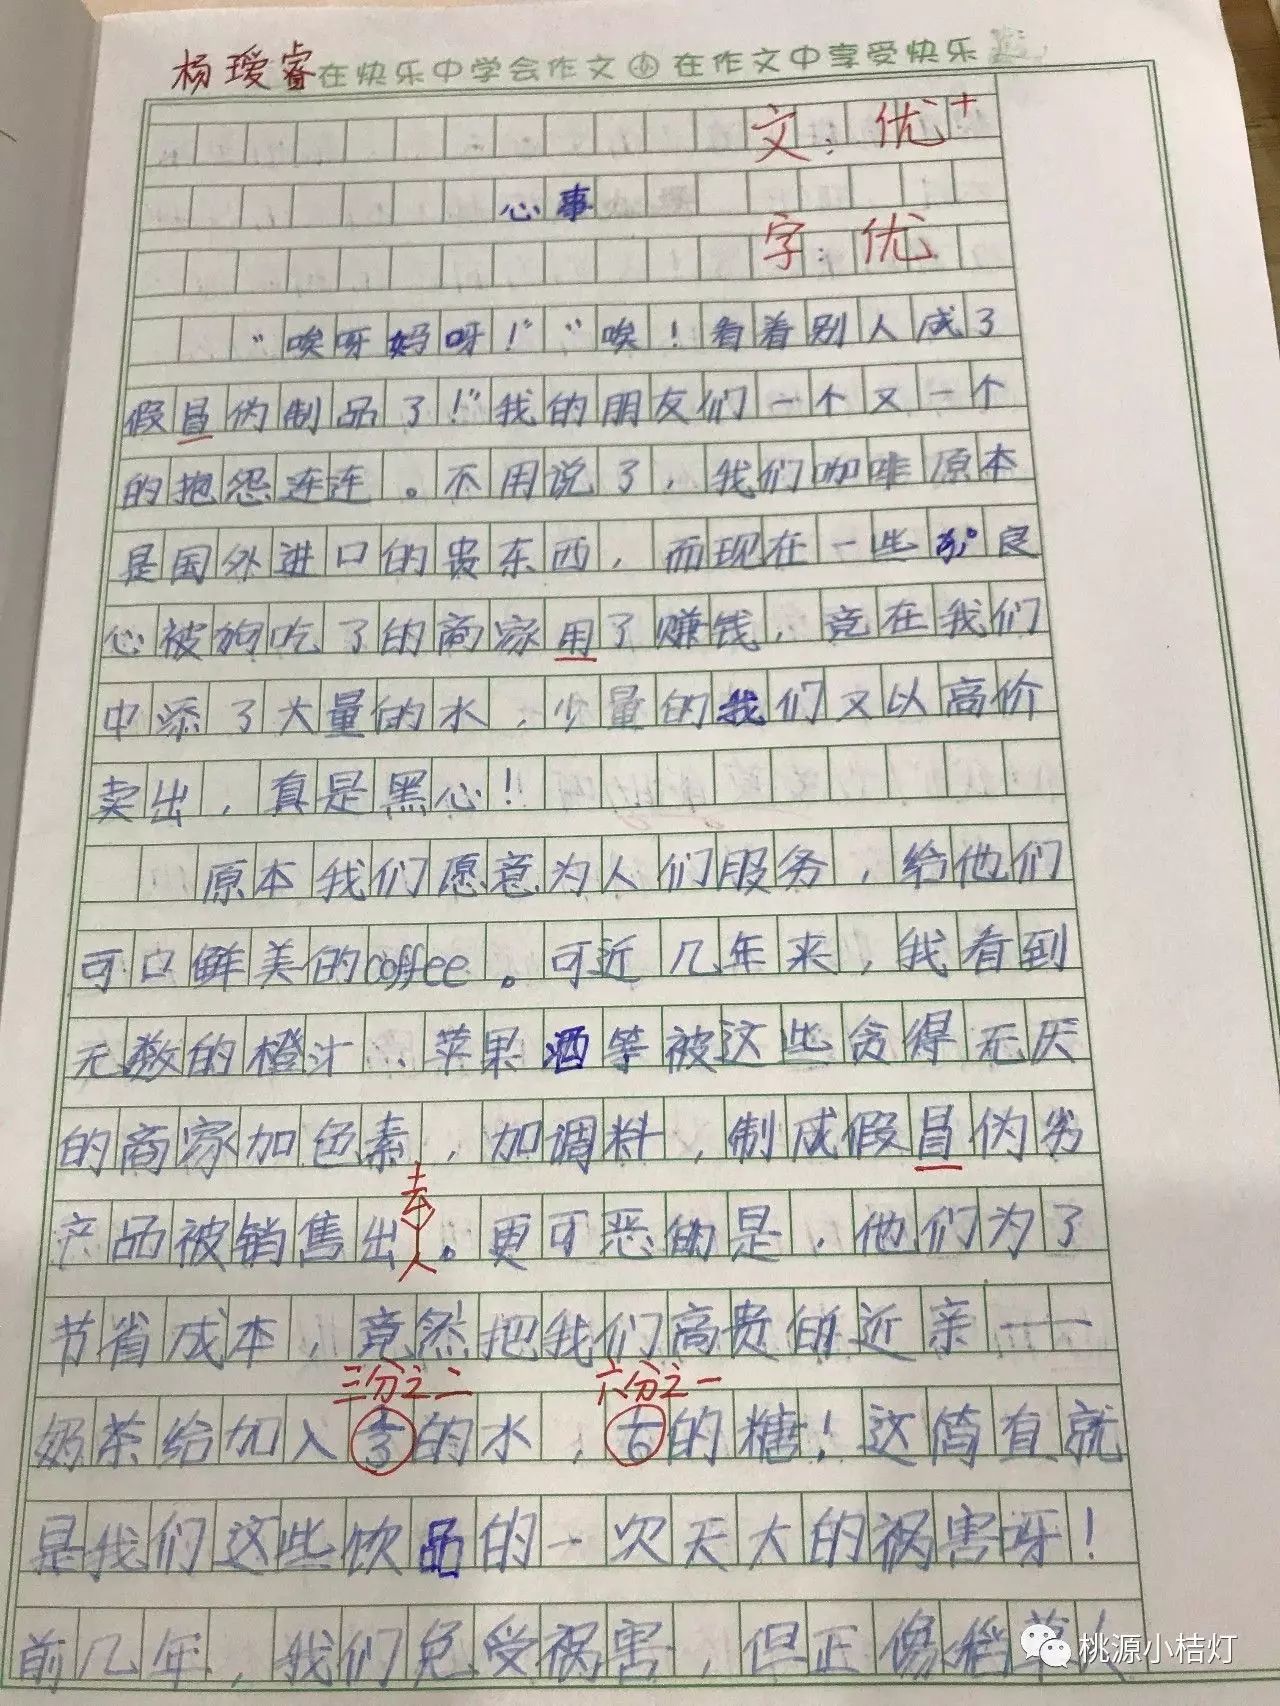 杨瑷睿在快乐中学会作文 在作文中享受快乐
文：优+
心事
字：优
“唉呀妈呀！”“唉！看着别人成了
假冒伪制品了！”我的朋友们一个又一个
的抱怨连连。不用说了，我们咖啡原本
是国外进口的贵东西，而现在一些良
心被狗吃了的商家用了赚钱，竟在我们
中添了大量的水，少量的我们又以高价
卖出，真是黑心！
原本我们愿意为人们服务，给他们
可口鲜美的coffee。可近几年来，我看到
无数的橙汁、苹果酒等被这些贪得无厌
的商家加色素，加调料，制成假冒伪劣
产品被销售出去。更可恶的是，他们为了
节省成本，竟然把我们高贵的近亲——
三分之二 六分之一
奶茶给加入的水，的糖！这简直就
是我们这些饮品的一次天大的祸害呀！
前几年，我们免受祸害，但正像稻草人
桃源小桔灯